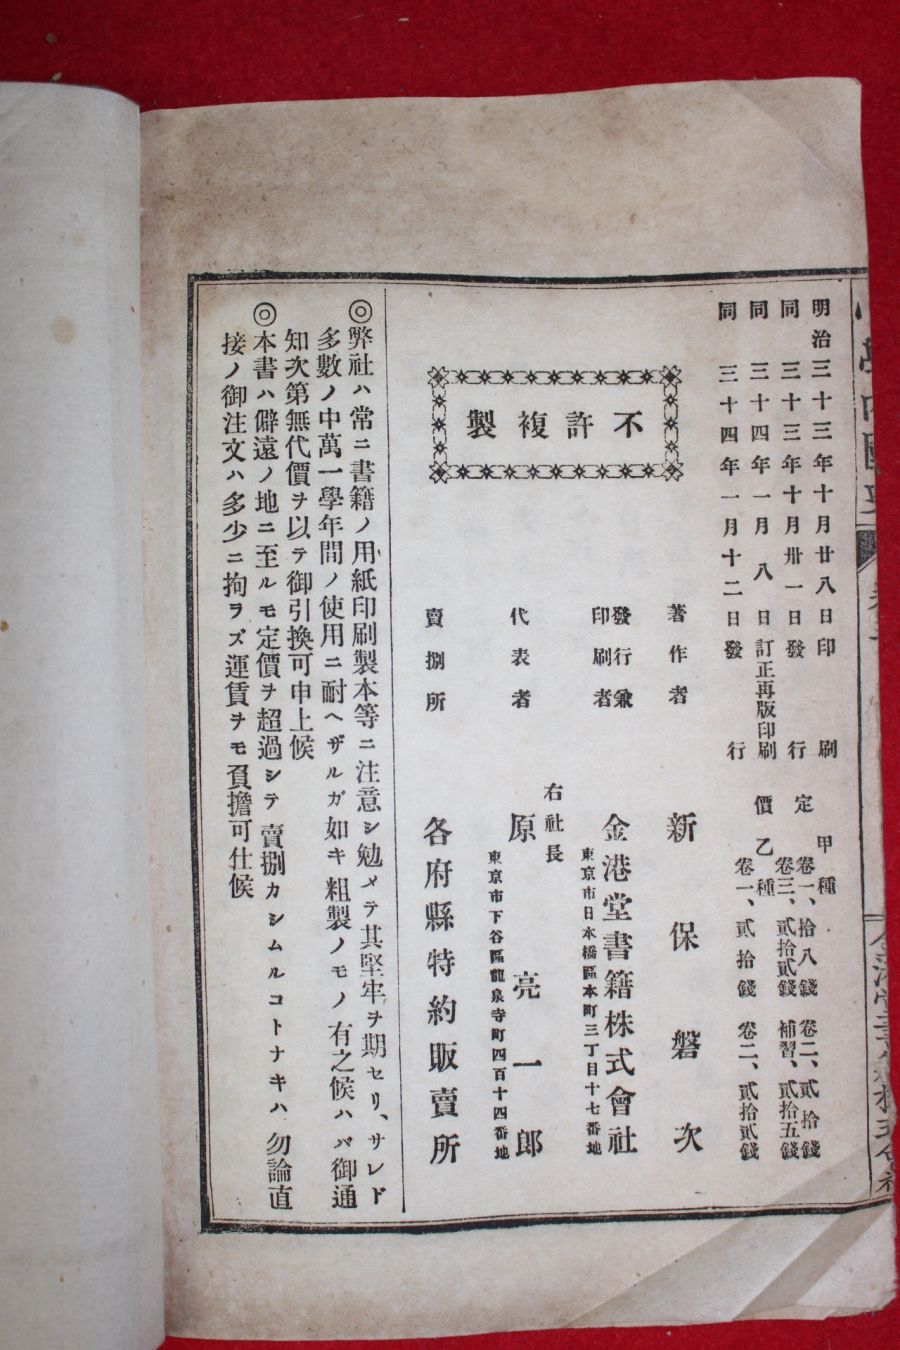 明治三十三年十月廿八日印刷
同三十三年十月卅一日發行
同三十四年一月八日訂正再版印刷
同三十四年一月十二日發行
定價
甲種
卷一、拾八錢 卷二、貳拾錢
卷三、貳拾貳錢 補習、貳拾五錢
乙種
卷一、貳拾錢 卷二、貳拾貳錢
不許複製
著作者 新保磐次
發行兼印刷者 金港堂書籍株式會社
東京市日本橋區本町三丁目十七番地
右社長
代表者 原亮一郎
東京市下谷區龍泉寺町四百十四番地
賣捌所 各府縣特約販賣所
◎弊社ハ常ニ書籍ノ用紙印刷製本等ニ注意シ勉メテ其堅牢ヲ期セリ、サレド
多數ノ中萬一學年間ノ使用ニ耐ヘザルガ如キ粗製ノモノ有之候ハヾ御通
知次第無代價ヲ以テ御引換可申上候
◎本書ハ僻遠ノ地ニ至ルモ定價ヲ超過シテ賣捌カシムルコトナキハ勿論直
接ノ御注文ハ多少ニ拘ヲズ運賃ヲモ負擔可仕候